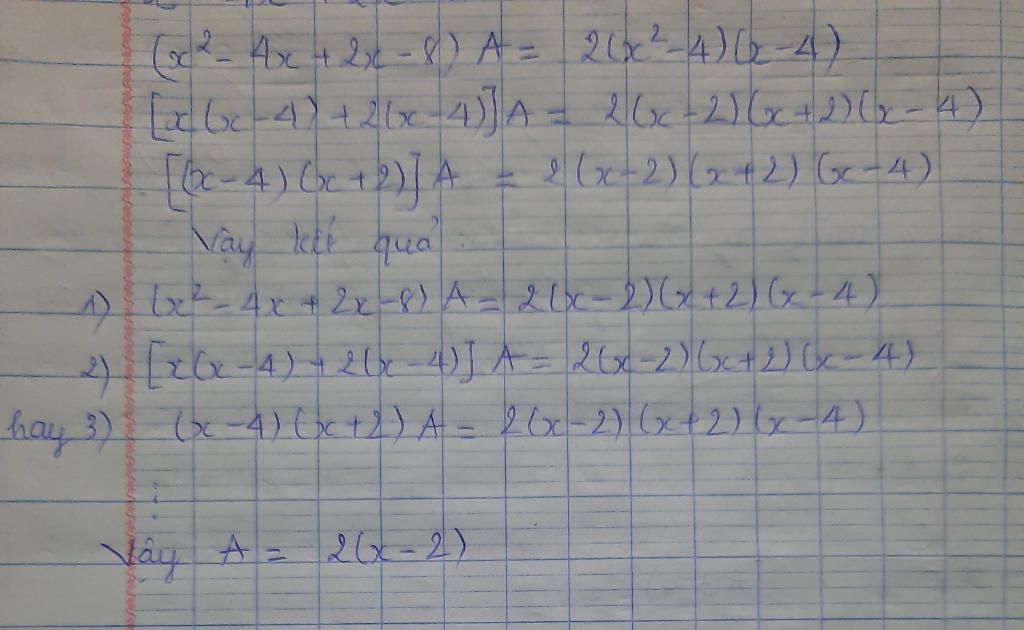 (x² - 4x + 2x - 8) A = 2(x² - 4)(x - 4)
[x(x - 4) + 2(x - 4)] A = 2(x - 2)(x + 2)(x - 4)
[(x - 4)(x + 2)] A = 2(x - 2)(x + 2)(x - 4)
Vậy kết quả :
1) (x² - 4x + 2x - 8) A = 2(x - 2)(x + 2)(x - 4)
2) [x(x - 4) + 2(x - 4)] A = 2(x - 2)(x + 2)(x - 4)
hay 3) (x - 4)(x + 2) A = 2(x - 2)(x + 2)(x - 4)
⋮
Vậy A = 2(x - 2)